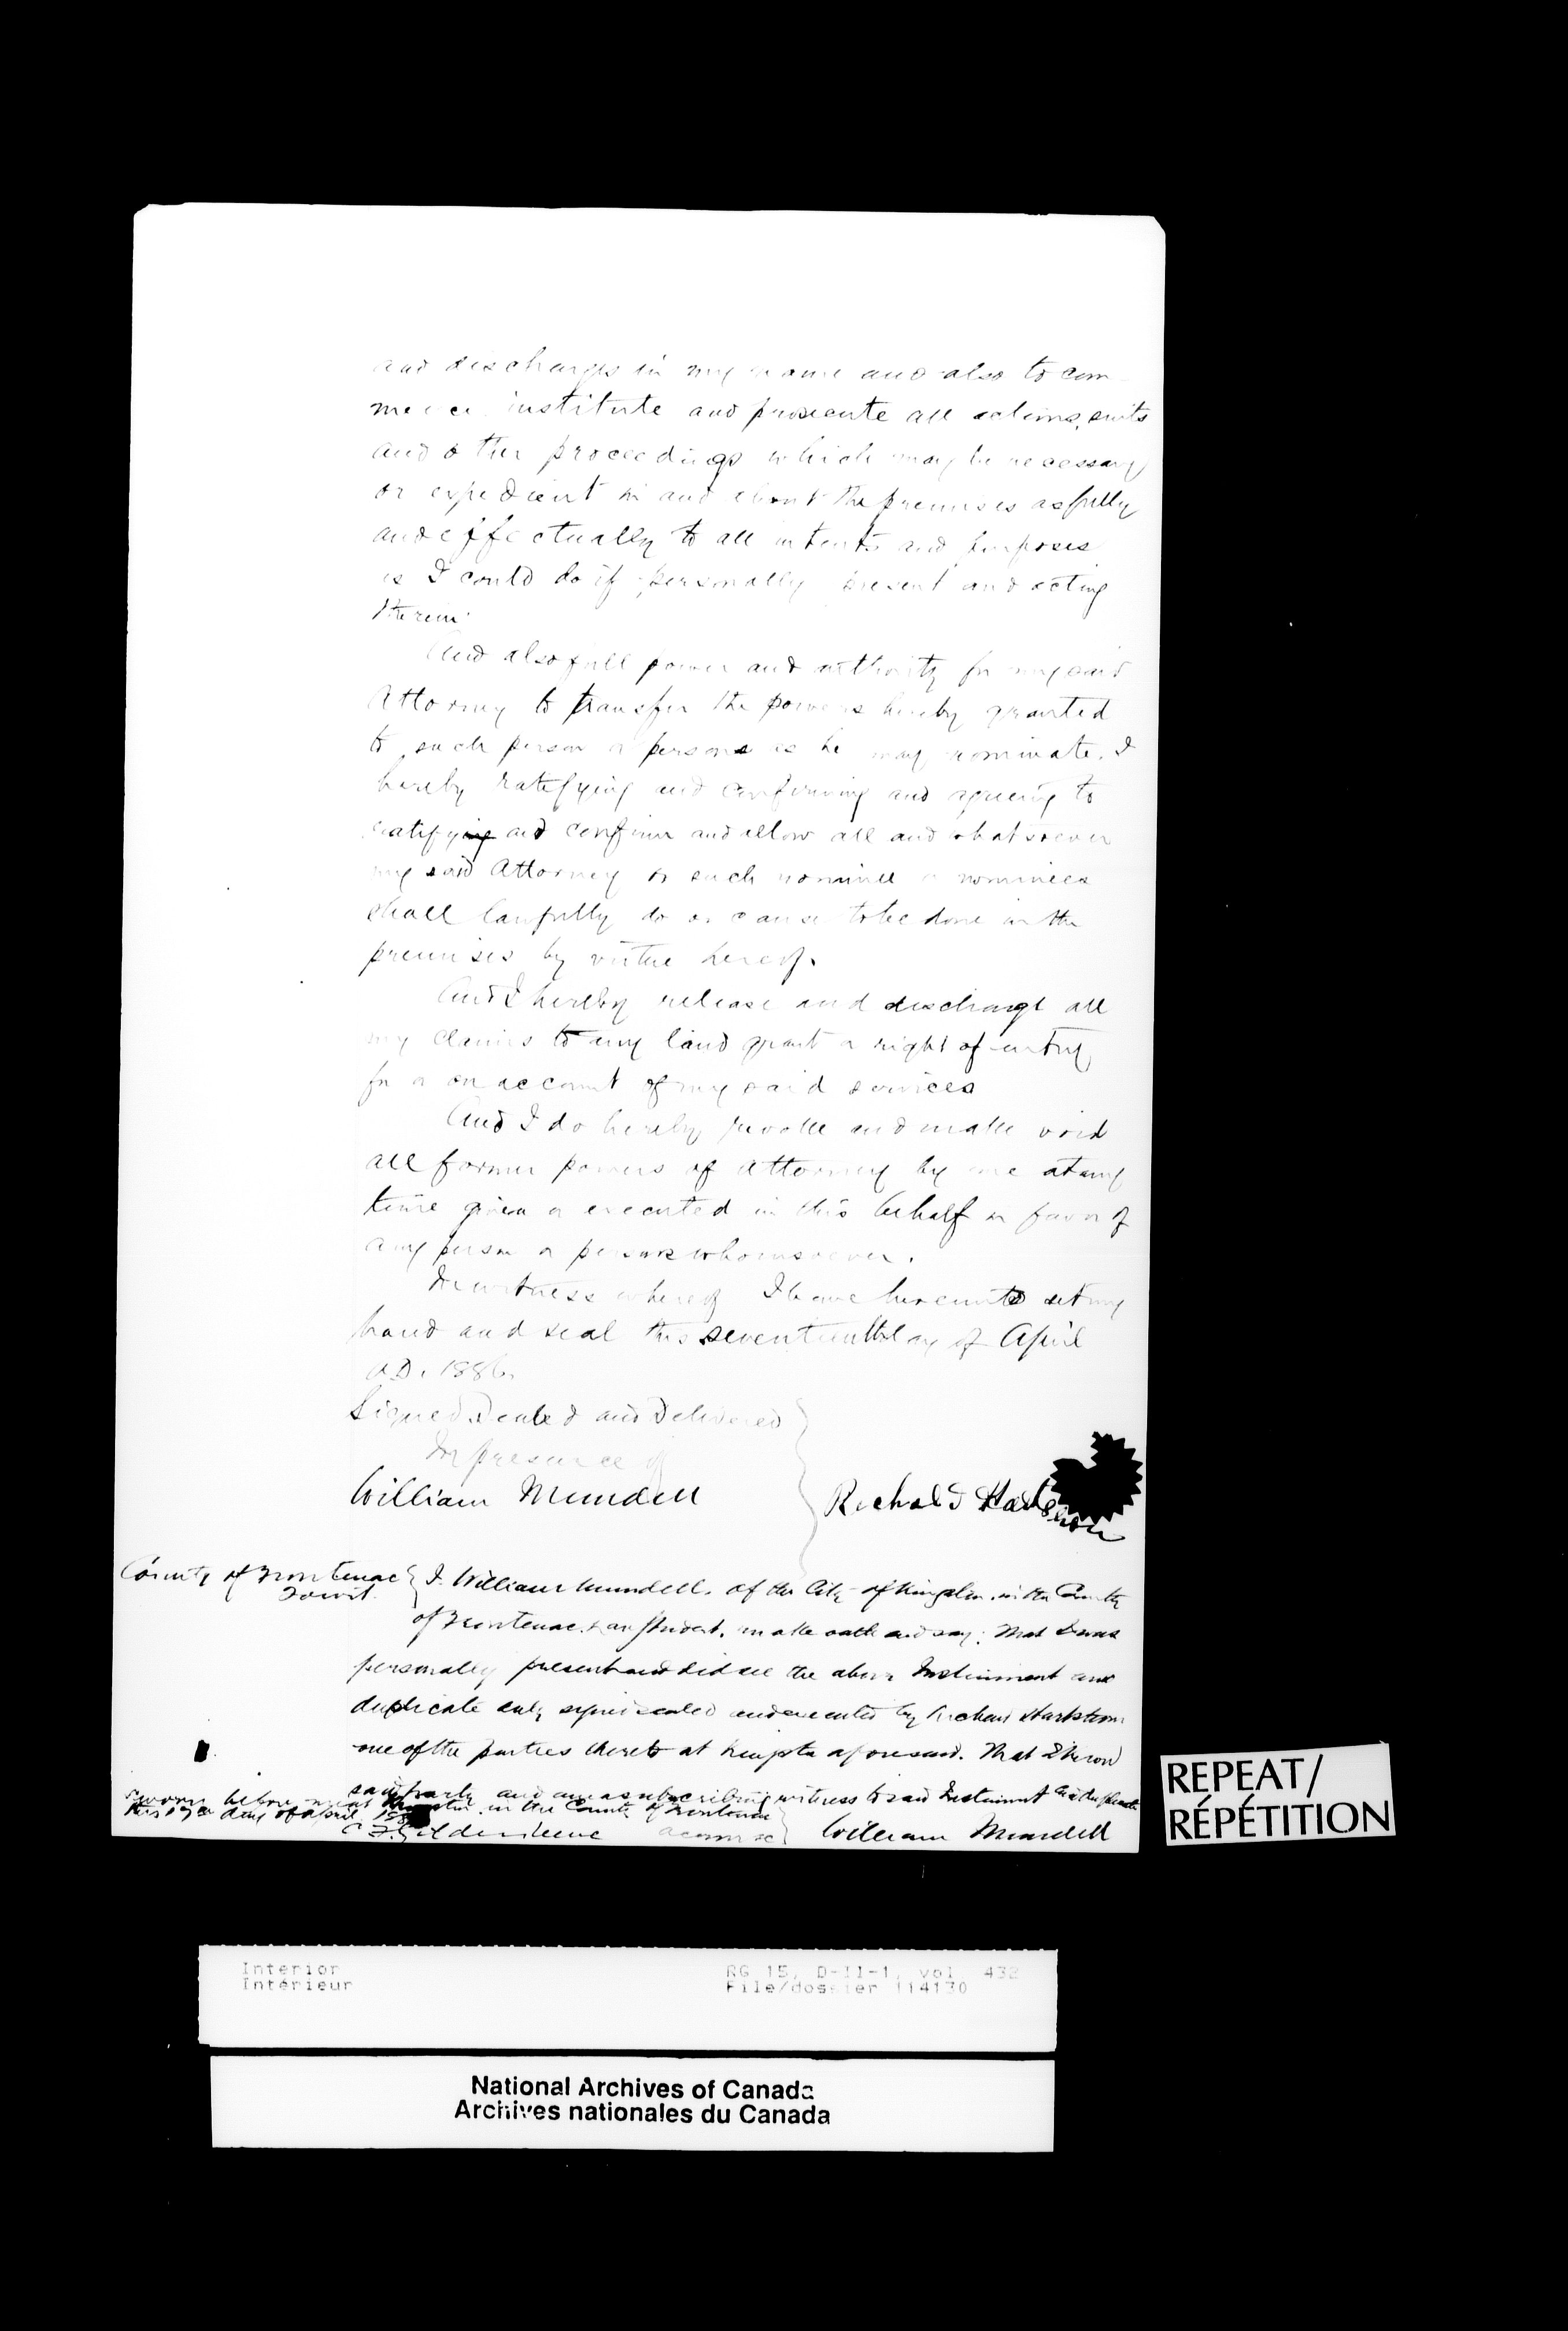 and discharges in my name and also to com-
mence institute and prosecute all actions, suits
and other proceedings which may be necessary
or expedient in and about the premises as fully
and effectually to all intents and purposes
as I could do if personally present and acting
therein.
And also full power and authority for my said
Attorney to transfer the powers hereby granted
to such person or persons as he may nominate. I
hereby ratifying and confirming and agreeing to
ratifying and confirm and allow all and whatsoever
my said Attorney or such nominee or nominees
shall lawfully do or cause to be done in the
premises by virtue hereof.
And I hereby release and discharge all
my claims to any land grant or right of entry
for or on account of my said services
And I do hereby revoke and make void
all former powers of attorney by me at any
time given or executed in this behalf in favor of
any person or persons whomsoever.
In witness whereof I have hereunto set my
hand and seal this seventeenth day of April
A.D. 1886.
Signed, Sealed and Delivered
In presence of
William Mundell
Richard
County of Frontenac
To wit.
I, William Mundell, of the City of Kingston, in the County
of Frontenac, Law Student, make oath and say: That I was
personally present and did see the above Instrument and
duplicate duly signed sealed and executed by Richard
one of the parties thereto at Kingston aforesaid. That I know
said party and am a subscribing witness to said Instrument and duplicate
Sworn before me at Kingston in the County of Frontenac
this day of April
William Mundell
REPEAT/
RÉPÉTITION
Interior
Intérieur
RG 15, D-II-1, vol. 432
File/dossier 114130
National Archives of Canada
Archives nationales du Canada